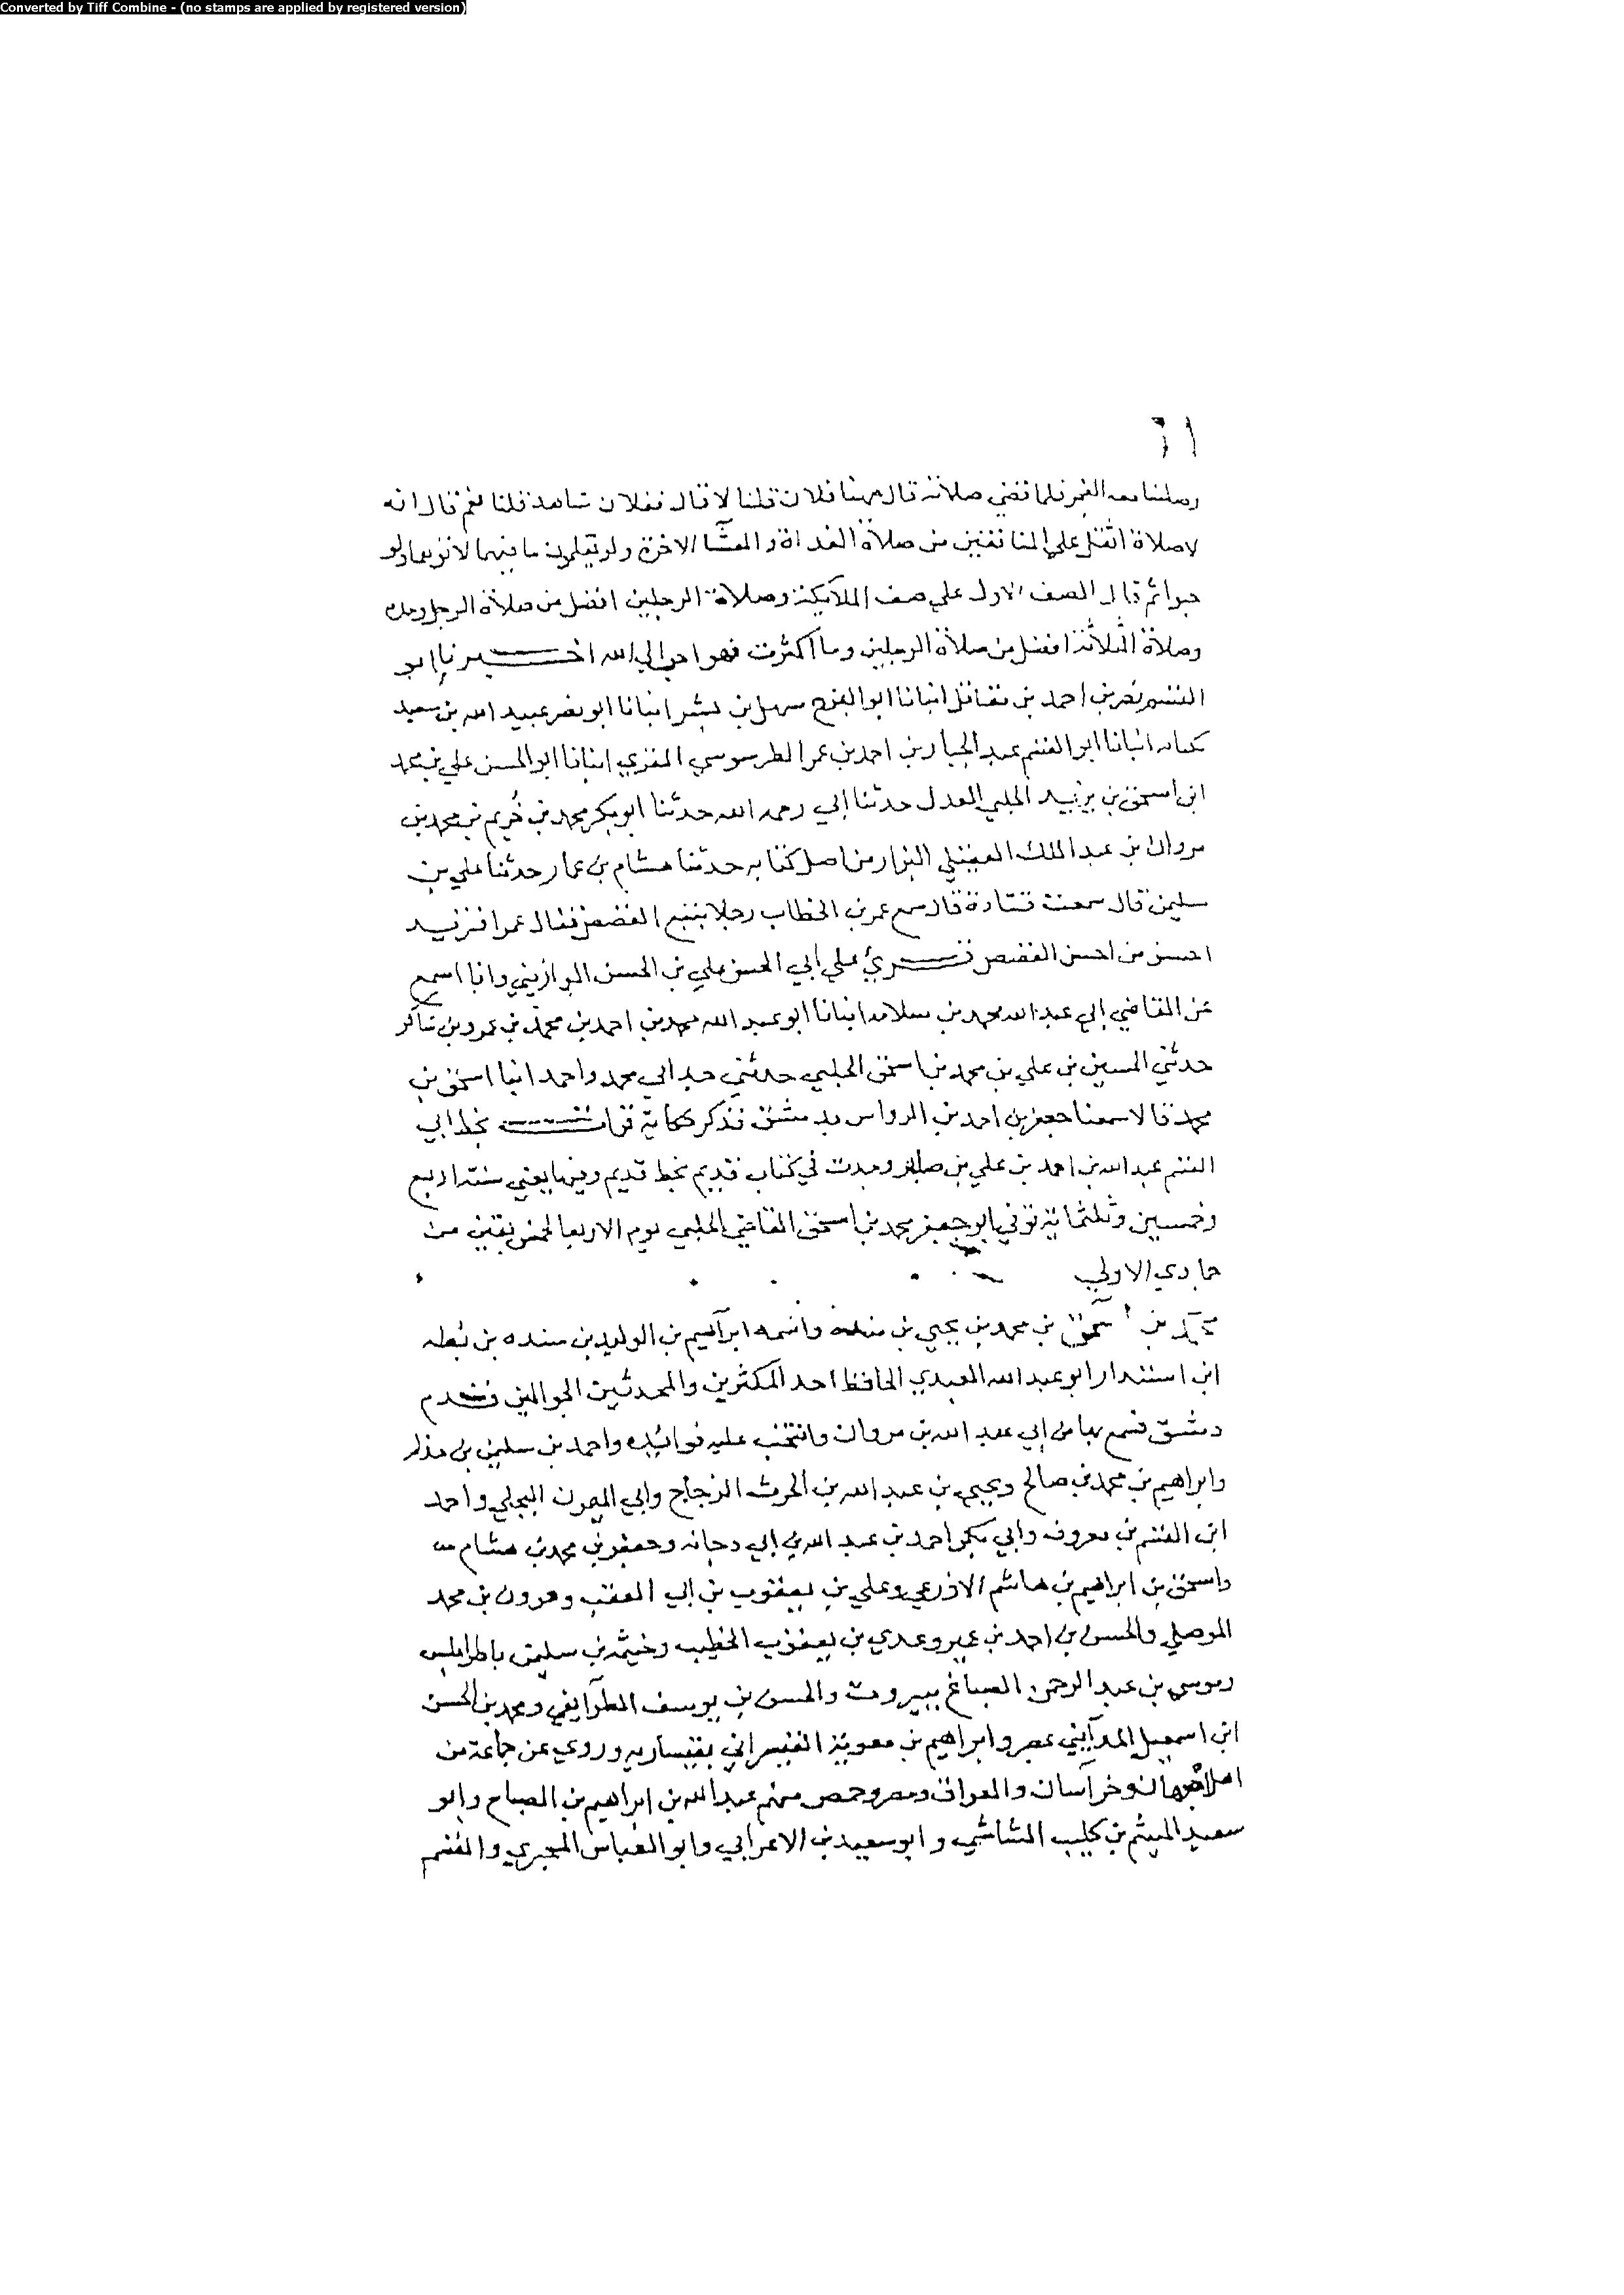 Converted by Tiff Combine - (no stamps are applied by registered version)
وصلينا معه الفجر فلما قضي صلاته قال ههنا فلان قلنا لا قال ففلان شاهد قلنا نعم قال انه
لا صلاة اثقل علي المنافقين من صلاة الغداة والعشآ الاخرة ولو يعلمون ما فيهما لاتوهما ولو
حبوا ثم قال الصف الاول علي صف الملآيكة وصلاة الرجلين افضل من صلاة الرجل وحده
وصلاة الثلاثة افضل من صلاة الرجلين وما اكثرت فهو احب الي الله اخبرنا ابو
القسم نصر بن احمد بن مقاتل انبانا ابو الفرج سهل بن بشر انبانا ابو نصر عبيد الله بن سعيد
كتابه انبانا ابو القسم عبد الجبار بن احمد بن عمر الطرسوسي المقري انبانا ابو الحسن علي بن محمد
ابن اسحق بن يزيد الحلبي المعدل حدثنا ابي رحمه الله حدثنا ابو بكر محمد بن خريم بن محمد بن
مروان بن عبد الملك العقيلي البزار من اصل كتابه حدثنا هشام بن عمار حدثنا علي بن
سليمن قال سمعت قتادة قال سمع عمر بن الخطاب رجلا يتبع القصص فقال عمر افتريد
احسن من احسن القصص قرئ علي ابي الحسن علي بن الحسن الموازيني وانا اسمع
عن القاضي ابي عبد الله محمد بن سلامه انبانا ابو عبد الله محمد بن احمد بن محمد بن عمرو بن شاكر
حدثني الحسين بن علي بن محمد بن اسحق الحلبي حدثني جد ابي محمد واحمد ابنا اسحق بن
محمد قالا سمعنا جعفر بن احمد بن الرواس بدمشق فذكر حكاية قرات بخط ابي
القسم عبد الله بن احمد بن علي بن صابر وجدت في كتاب قديم بخط قديم وفيها يعني سنة اربع
وخمسين وثلثماية توفي ابو جعفر محمد بن اسحق القاضي الحلبي يوم الاربعا لخمس بقين من
جمادي الاولي
محمد بن اسحق بن محمد بن يحيي بن منده واسمه ابرآهيم بن الوليد بن سنده بن بُطه
ابن استندار ابو عبد الله العبدي الحافظ احد المكثرين والمحدثين الجوالين قدم
دمشق فسمع بها من ابي عبد الله بن مروان وانتخب عليه فوائده واحمد بن سليمن بن حذلم
وابراهيم بن محمد بن صالح ويحيي بن عبد الله بن الحرث الزجاج وابي الميمون البجلي واحمد
ابن القسم بن معروف وابي بكر احمد بن عبد الله بن ابي دجانه وجعفر بن محمد بن هشام
واسحق بن ابراهيم بن هاشم الاذرعي وعلي بن يعقوب بن ابي العقب وهرون بن محمد
الموصلي والحسن بن احمد بن عمير وعدي بن يعقوب الخطيب وخيثمه بن سليمن باطرابلس
وموسي بن عبد الرحمن الصباغ ببيروت والحسن بن يوسف الطرآيفي ومحمد بن الحسن
ابن اسمعيل المدآيني بمصر وابراهيم بن معوية القيسراني بقيساريه وروي عن جماعة من
اهل اصبهان وخراسان والعراق ومصر وحمص منهم عبد الله بن ابراهيم بن الصباح وابو
سعيد الهيثم بن كليب الشاشي وابو سعيد بن الاعرابي وابو العباس المحبوبي والقسم